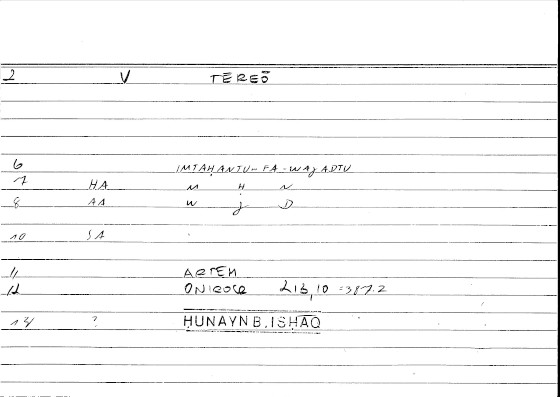 2 V TĒREŌ
6 IMTAḤANTU-FA-WAJADTU
7 HA M Ḥ N
8 AA W J D
10 SA
11 ARTEM
12 ONIROCR 213,10 =387.2
14 ? HUNAYN B. ISHAQ